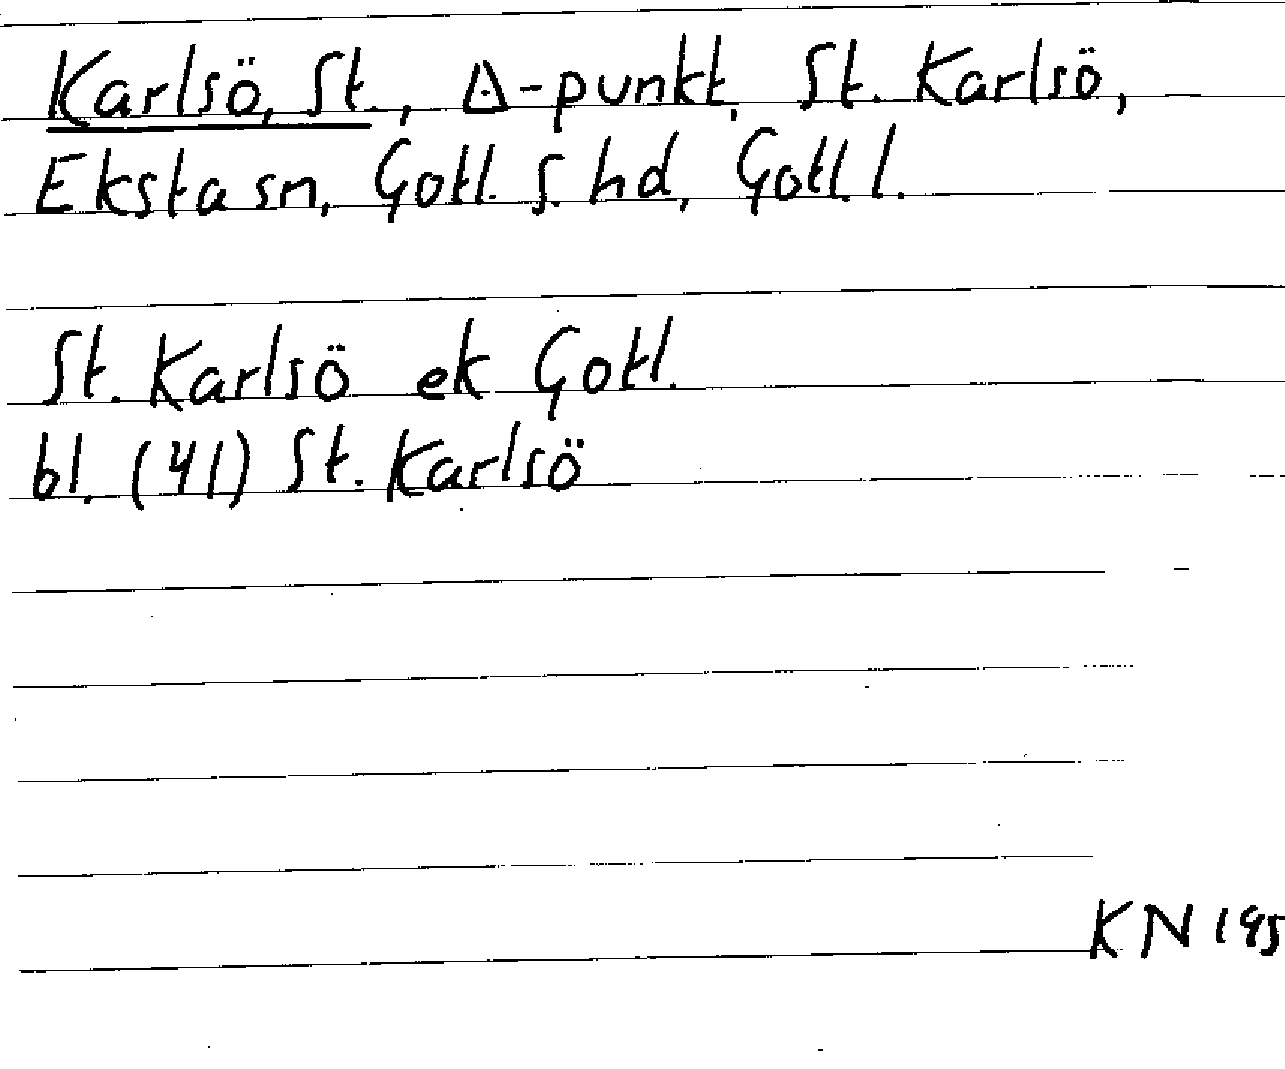 Karlsö, St., Δ-punkt, St. Karlsö,
Eksta sn, Gotl. S. hd, Gotl l.
St. Karlsö ek Gotl.
bl. (41) St. Karlsö
KN 195